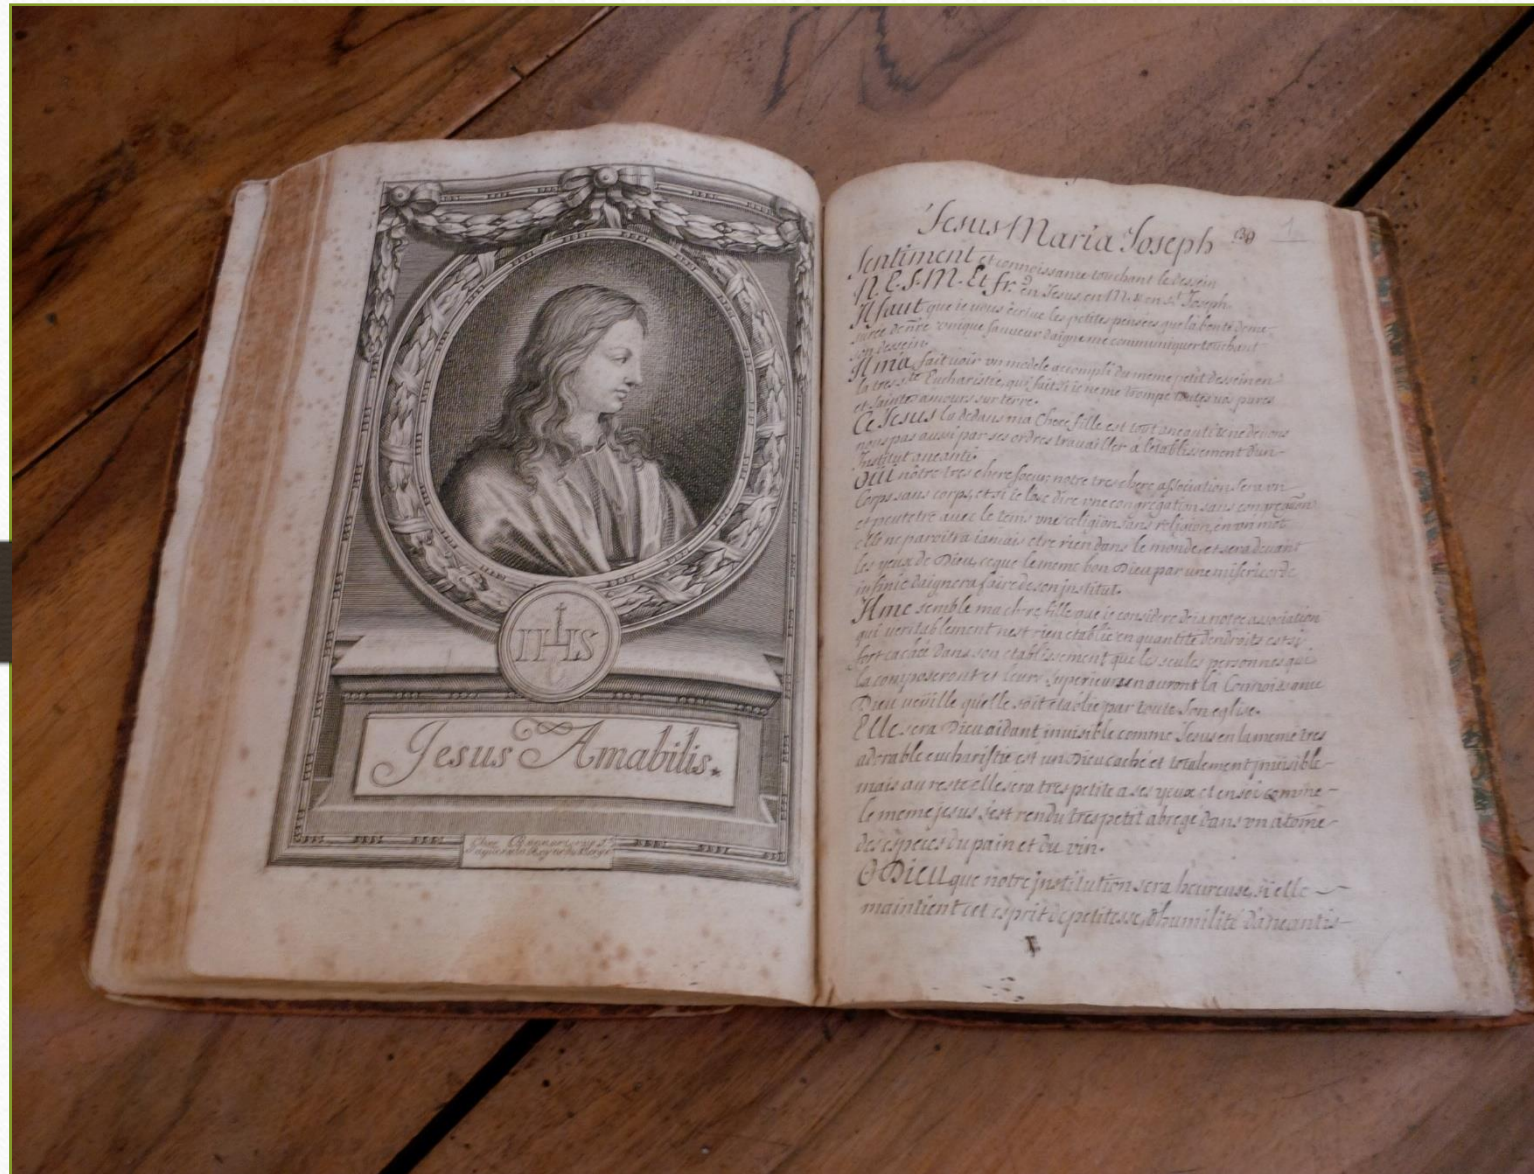 IHS
Jesus Amabilis.
Jesus Maria Joseph
Sentiment et connoissance touchant le dessein
N.E.S.M. Et fr. en Jesus, en M. & en St Joseph.
Il faut que ie vous écriue les petites pensées que la bonté deme-
surée de nre vnique sauueur daigne me communiquer touchant
son dessein.
Il ma fait voir vn modele accompli du meme petit dessein en
la tres ste Eucharistie, qui fait si ie ne me trompe toutes vos pures
et saintes amours sur terre.
Ce Jesus la dedans ma Chere fille est tout aneanti & ne deuons
nous pas aussi par ses ordres trauailler a letablissement dun
Institut aneanti.
Oui nôtre tres chere soeur, notre tres chere association sera vn
Corps sans corps, et si ie lose dire vne congregation sans congregaon
et peutetre auec le tems vne religion sans religion, en vn mot
elle ne paroitra iamais etre rien dans le monde et sera deuant
les yeux de Dieu, ce que le meme bon Dieu par vne misericorde
infinie daignera faire de son institut.
Il me semble ma chere fille que ie considere deia notre association
qui veritablement nest rien etablie en quantité dendroits et si
fort cachée dans son etablissement que les seules personnes qui
la composeront et leurs Superieurs en auront la Connoissance
Dieu veüille quelle soit etablie par toute son eglise.
Elle sera Dieu aidant inuisible comme Jesus en la meme tres
adorable eucharistie est un Dieu caché et totalement inuisible
mais au reste elle sera tres petite a ses yeux et en soi comme
le meme jesus sest rendu tres petit abregé dans vn atome
des especes du pain et du vin.
O Dieu que notre institution sera heureuse, si elle
maintient cet esprit de petitesse, dhumilité daneantis-